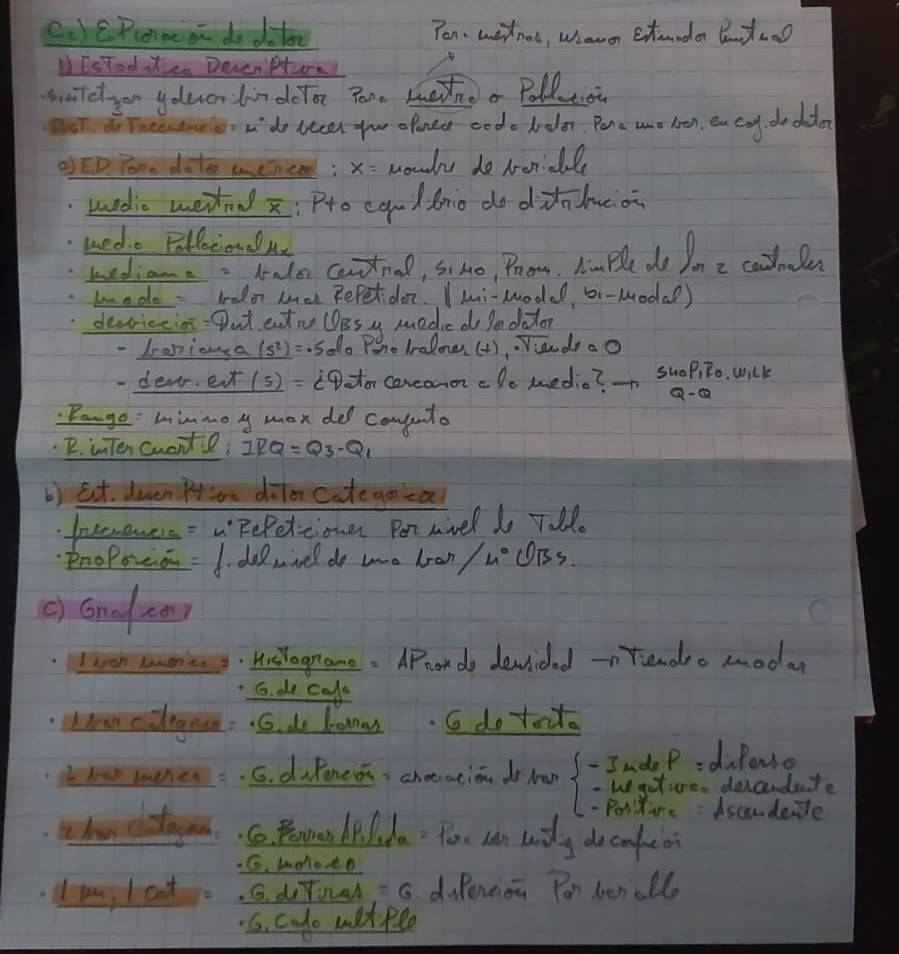 C2) Exploración de datos
Para muestras, usamos Estimador Puntual
1) Estadística Descriptiva
• sintetizar y describir datos para muestra o Población
• Dist. de Frecuencia = n° de veces que aparece cada valor. Para una var. en conj. de datos
a) ED. Para datos numérico : x = nombre de variable
• media muestral x̄ : Pto equilibrio de distribución
• media Poblacional μx
• mediana = valor central, si no, Prom. simple de los 2 centrales
• moda = valor mas Repetidos. (uni-modal, bi-modal)
• desviación = Dist. entre OBS y media de los datos
- varianza (s²) = • Solo Para valores (+), • Tiende a 0
- desv. est (s) = ¿Datos cercanos a la media? → SHAPIRO. WILK
Q-Q
• Rango = minimo y max del conjunto
• R. inter cuartil ; IRQ = Q3-Q1
b) Est. descriptiva datos Categóricos
• frecuencia = n° Repeticiones Por nivel de Tabla
• Proporción = f. del nivel de una var / n° OBS.
c) Graficos
• 1 var numérica = • Histograma = Aprox de densidad → Tiende a modas
• G. de caja
• 1 var categórica = • G. de barras • G de torta
• 2 var numérica = • G. disperción = asociación de var { - Indep = disperso
- Negativa = descendente
- Positiva = Ascendente
• 2 var Categórica = • G. Barras Apilada = Para ver matriz de confusión
• G. mosaico
• 1 num, 1 cat = • G. de Tiras = G. disperción Por variable
• G. Caja multiple